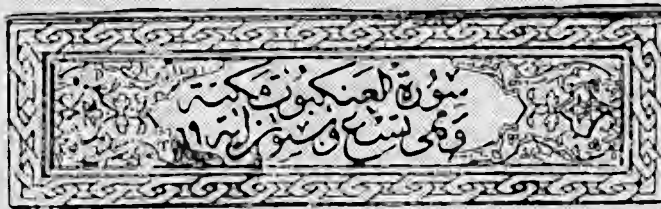 سورة العنكبوت مكية
وهى تسع وستون اية